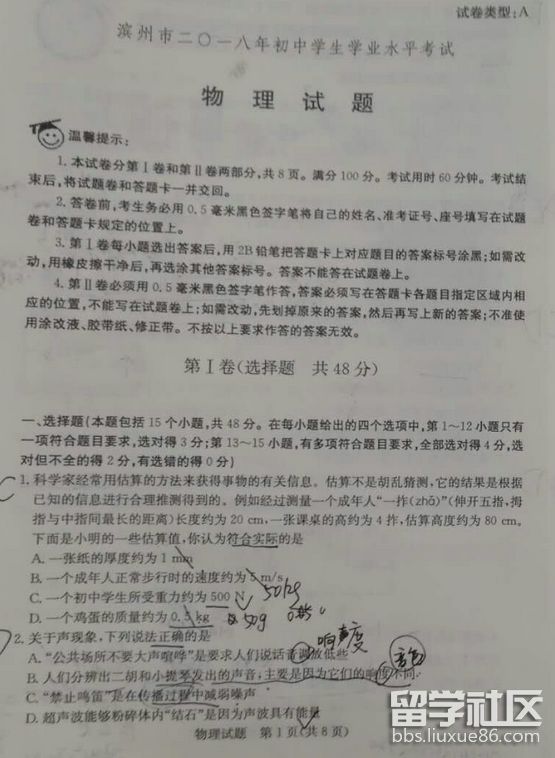 试卷类型:A
滨州市二〇一八年初中学生学业水平考试
物理试题
温馨提示:
1.本试卷分第Ⅰ卷和第Ⅱ卷两部分,共8页。满分100分。考试用时60分钟。考试结
束后,将试题卷和答题卡一并交回。
2.答卷前,考生务必用0.5毫米黑色签字笔将自己的姓名、准考证号、座号填写在试题
卷和答题卡规定的位置上。
3.第Ⅰ卷每小题选出答案后,用2B铅笔把答题卡上对应题目的答案标号涂黑;如需改
动,用橡皮擦干净后,再选涂其他答案标号。答案不能答在试题卷上。
4.第Ⅱ卷必须用0.5毫米黑色签字笔作答,答案必须写在答题卡各题目指定区域内相
应的位置,不能写在试题卷上;如需改动,先划掉原来的答案,然后再写上新的答案;不准使
用涂改液、胶带纸、修正带。不按以上要求作答的答案无效。
第Ⅰ卷(选择题 共48分)
一、选择题(本题包括15个小题,共48分。在每小题给出的四个选项中,第1~12小题只有
一项符合题目要求,选对得3分;第13~15小题,有多项符合题目要求,全部选对得4分,选
对但不全的得2分,有选错的得0分)
C 1.科学家经常用估算的方法来获得事物的有关信息。估算不是胡乱猜测,它的结果是根据
已知的信息进行合理推测得到的。例如经过测量一个成年人“一拃(zhǎ)”(伸开五指,拇
指与中指间最长的距离)长度约为20 cm,一张课桌的高约为4拃,估算高度约为80 cm。
下面是小明的一些估算值,你认为符合实际的是
A.一张纸的厚度约为1 mm
B.一个成年人正常步行时的速度约为5 m/s
C.一个初中学生所受重力约为500 N 50kg
D.一个鸡蛋的质量约为0.5 kg 50g
2.关于声现象,下列说法正确的是
响度
A.“公共场所不要大声喧哗”是要求人们说话音调放低些
音色
B.人们分辨出二胡和小提琴发出的声音,主要是因为它们的响度不同
C.“禁止鸣笛”是在传播过程中减弱噪声
D.超声波能够粉碎体内“结石”是因为声波具有能量
物理试题 第1页(共8页)
留学社区
bbs.liuxue86.com